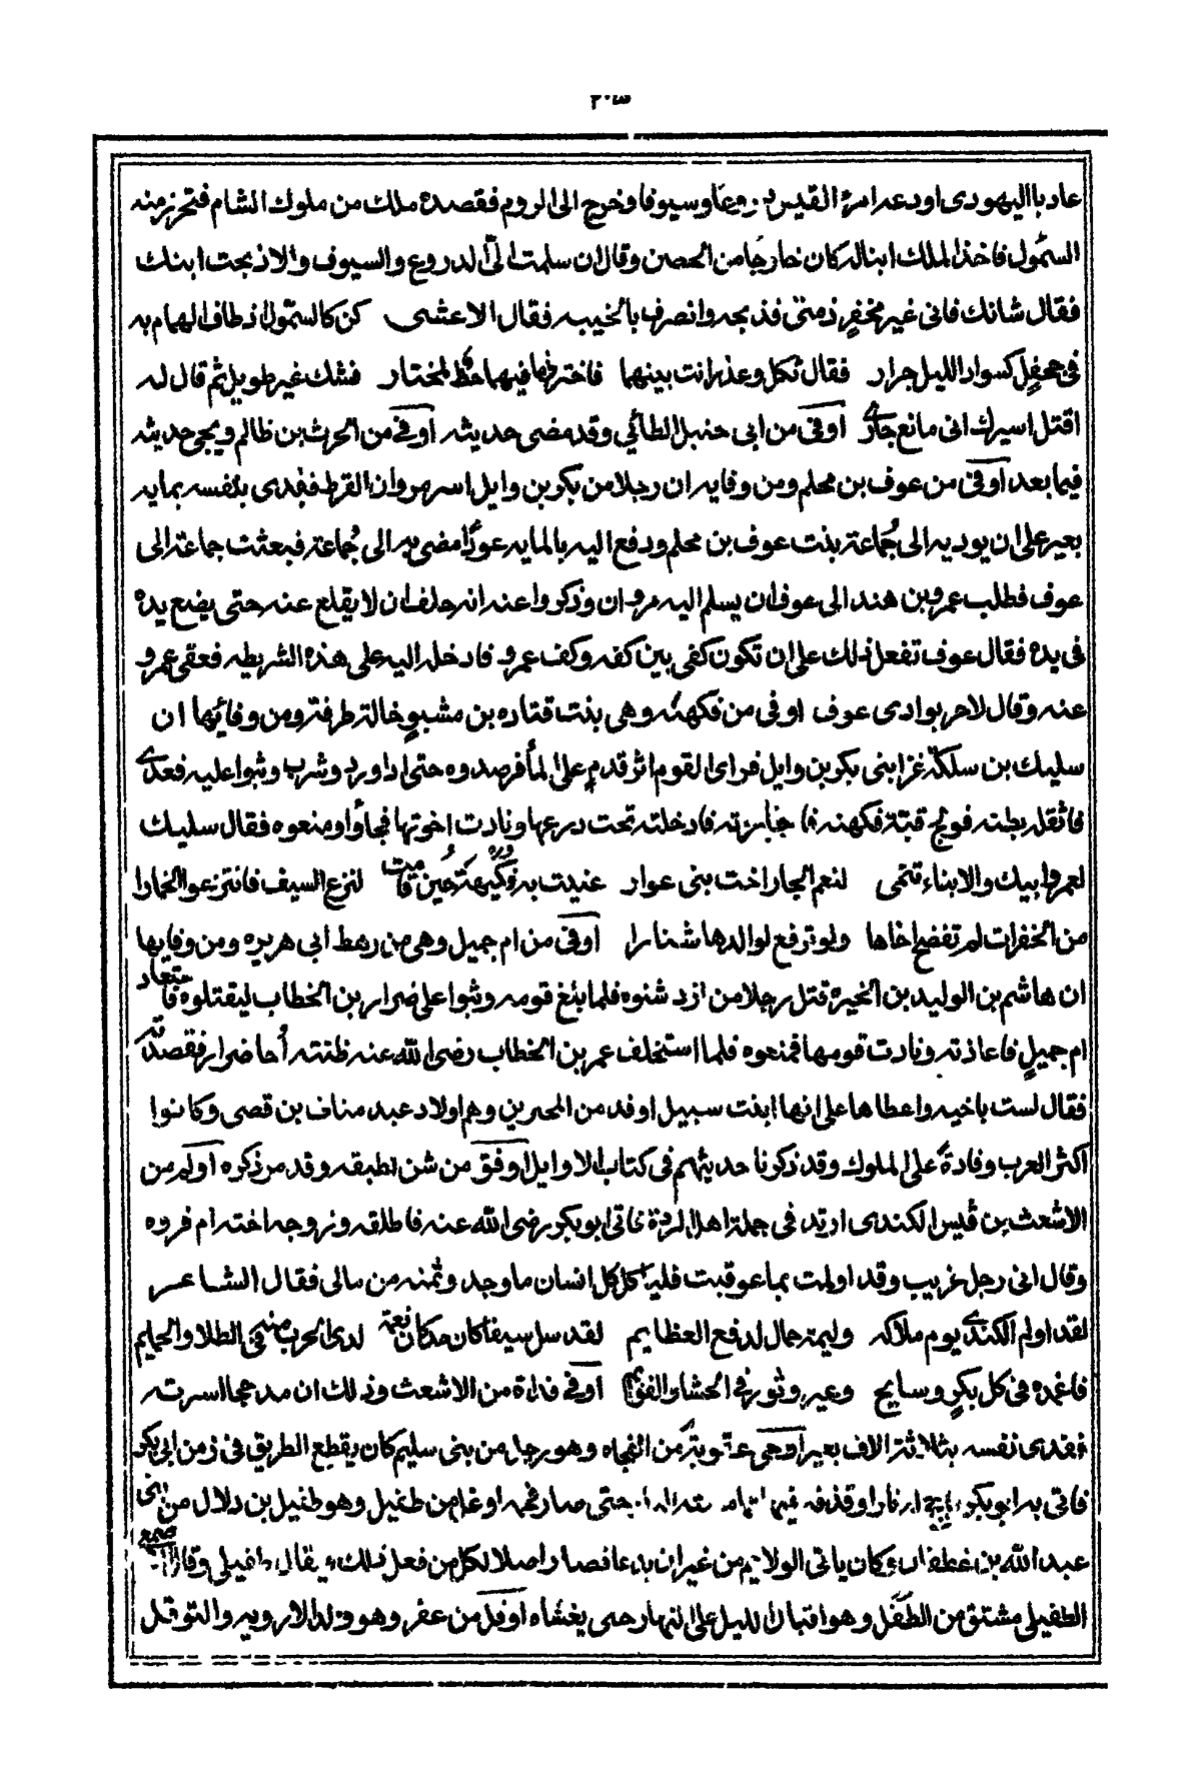 ٢٠٣
عاديا اليهودى اودعه امرؤ القيس دروعا وسيوفا وخرج الى الروم فقصده ملك من ملوك الشام فتحرز منه
السمول فاخذ الملك ابنا له كان خارجا من الحصن وقال ان سلمت الىّ الدروع والسيوف والا ذبحت ابنك
فقال شانك فانى غير مخفر ذمتى فذبحه وانصرف بالخيبه فقال الاعشى كن كالسمّول اذ طاف الهمام به
فى جحفل كسواد الليل جرار فقال ثكل وغدر انت بينهما فاختر فما فيهما حظ لمختار فشك غير طويل ثم قال له
اقتل اسيرك انى مانع جارى اوفى من ابى حنبل الطائي وقد مضى حديثه اوفى من الحرث بن ظالم ويجى حديثه
فيما بعد اوفى من عوف بن محلم ومن وفايه ان رجلا من بكر بن وايل اسر مروان القرط ففدى بنفسه بمايه
بعير على ان يوديه الى جُماعة بنت عوف بن محلم ودفع اليه بالمايه عودًا مضى به الى جُماعة فبعثت جماعة الى
عوف فطلب عمرو بن هند الى عوف ان يسلم اليه مروان وذكروا عنه انه حلف ان لا يقلع عنه حتى يضع يده
فى يده فقال عوف تفعل ذلك على ان تكون كفى بين كفه وكف عمرو فادخله اليه على هذه الشريطه فعفى عمرو
عنه وقال لا حر بوادى عوف اوفى من فكهته وهى بنت قتاده بن مشبوٍ خالة طرفة ومن وفائها ان
سليك بن سلكة غزا بنى بكر بن وايل فراى القوم اثر قدمٍ على الماْ فرصدوه حتى اذا ورد وشرب وثبوا عليه فعدى
فاثقله بطنه فولج قبّة فكهته فا جارته فادخلته تحت درعها ونادت اخوتها فجاؤا ومنعوه فقال سليك
لعمرو ابيك والابناء تنمى لنعم الجار اخت بنى عوار عنيت به فكيهة حين قامت لنزع السيف فانتزعوا الخمارا
من الخفرات لم تفضح اخاها ولم ترفع لوالدها شنارا اوفى من ام جميل وهى من رهط ابى هريره ومن وفايها
ان هاشم بن الوليد بن المغيره قتل رجلا من ازد شنوه فلما بلغ قومه وثبوا على ضرار بن الخطاب ليقتلوه فاستعاد
ام جميل فاعاذته ونادت قومها فمنعوه فلما استخلف عمر بن الخطاب رضى الله عنه ظنته أخا ضرار فقصدته
فقال لست باخيه واعطاها على انها ابنت سبيل اوفد من المجبرين وهم اولاد عبد مناف بن قصى وكانوا
اكثر العرب وفادة على الملوك وقد ذكرنا حديثهم فى كتاب الاوايل اوفق من شن لطبقه وقد مر ذكره اولم من
الاشعث بن قيس الكندى ارتد فى جملة اهل الردة فاتى ابو بكر رضى الله عنه فاطلقه وزوجه اخته ام فروه
وقال انى رجل غريب وقد اولمت بما عوقبت فلياكل كل انسان ما وجد وثمنه من مالى فقال الشاعر
لقد اولم الكندى يوم ملاكه وليمة حمال لدفع العظايم لقد سل سيفا كان مذ كان نعمة لدى الحرب منه فى الطلا والجماجم
فاغمده فى كل بكر وسابح وعير وثور فى الحشا والقوائم اوفى فداة من الاشعث وذلك ان مذحجا اسرته
ففدى نفسه بثلاثة الاف بعير اوحى عقوبة من الفجاه وهو رجل من بنى سليم كان يقطع الطريق فى زمن ابى بكر
فاتى به ابو بكر نارا وقذفه فيها حتى صار فحمه اوغل من طفيل وهو طفيل بن دلال من بنى
عبد الله بن غطفان وكان ياتى الولايم من غير ان يدعا فصار اصلا لكل من فعل ذلك يقال طفيلى وقال الاصمعى
الطفيلى مشتق من الطَفَل وهو اقبال الليل على النهار حتى يغشاه اوقل من عفر وهو ولد الارويه والتوقل